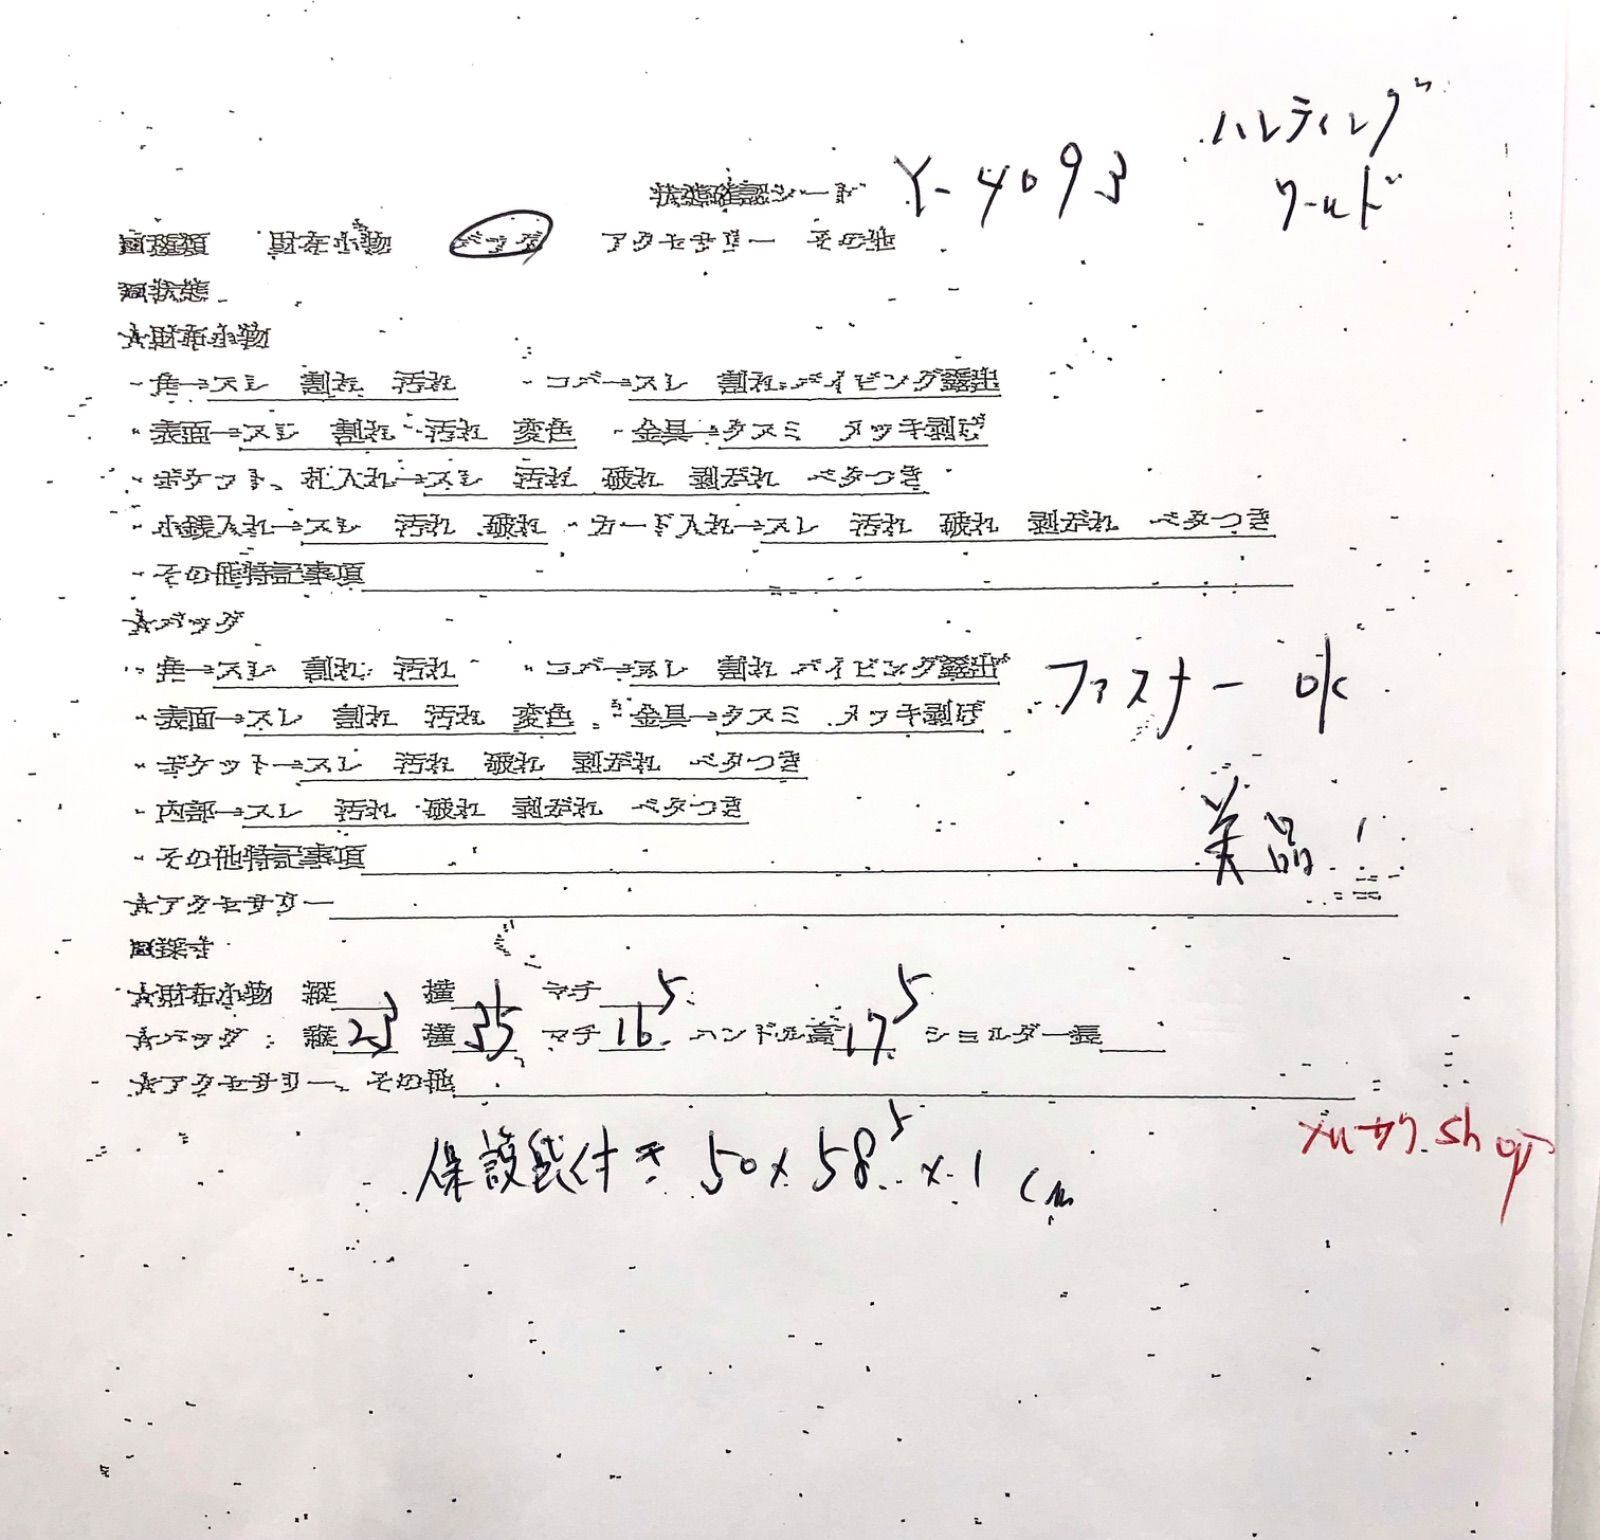 ハンティング
ワールド
状態確認シート Y-4093
■種類 財布小物 バッグ アクセサリー その他
■状態
☆財布小物
・角→スレ 割れ 汚れ ・コバ→スレ 割れ パイピング露出
・表面→スレ 割れ 汚れ 変色 ・金具→クスミ メッキ剥げ
・ポケット、札入れ→スレ 汚れ 破れ 剥がれ ベタつき
・小銭入れ→スレ 汚れ 破れ ・カード入れ→スレ 汚れ 破れ 剥がれ ベタつき
・その他特記事項
☆バッグ
・角→スレ 割れ 汚れ ・コバ→スレ 割れ パイピング露出
ファスナー ok
・表面→スレ 割れ 汚れ 変色 ・金具→クスミ メッキ剥げ
・ポケット→スレ 汚れ 破れ 剥がれ ベタつき
・内部→スレ 汚れ 破れ 剥がれ ベタつき
美品!
・その他特記事項
☆アクセサリー
■採寸
☆財布小物 縦 横 マチ
☆バッグ 縦 23 横 35 マチ 16.5 ハンドル高 17.5 ショルダー長
☆アクセサリー、その他
保護袋付き 50x58.5x1cm
shop